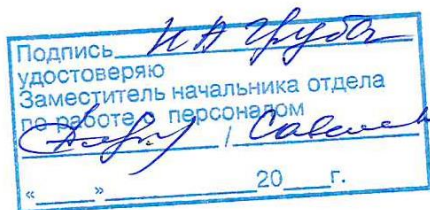 Подпись Н А Груба
удостоверяю
Заместитель начальника отдела
по работе с персоналом
/
«____»____________20___г.